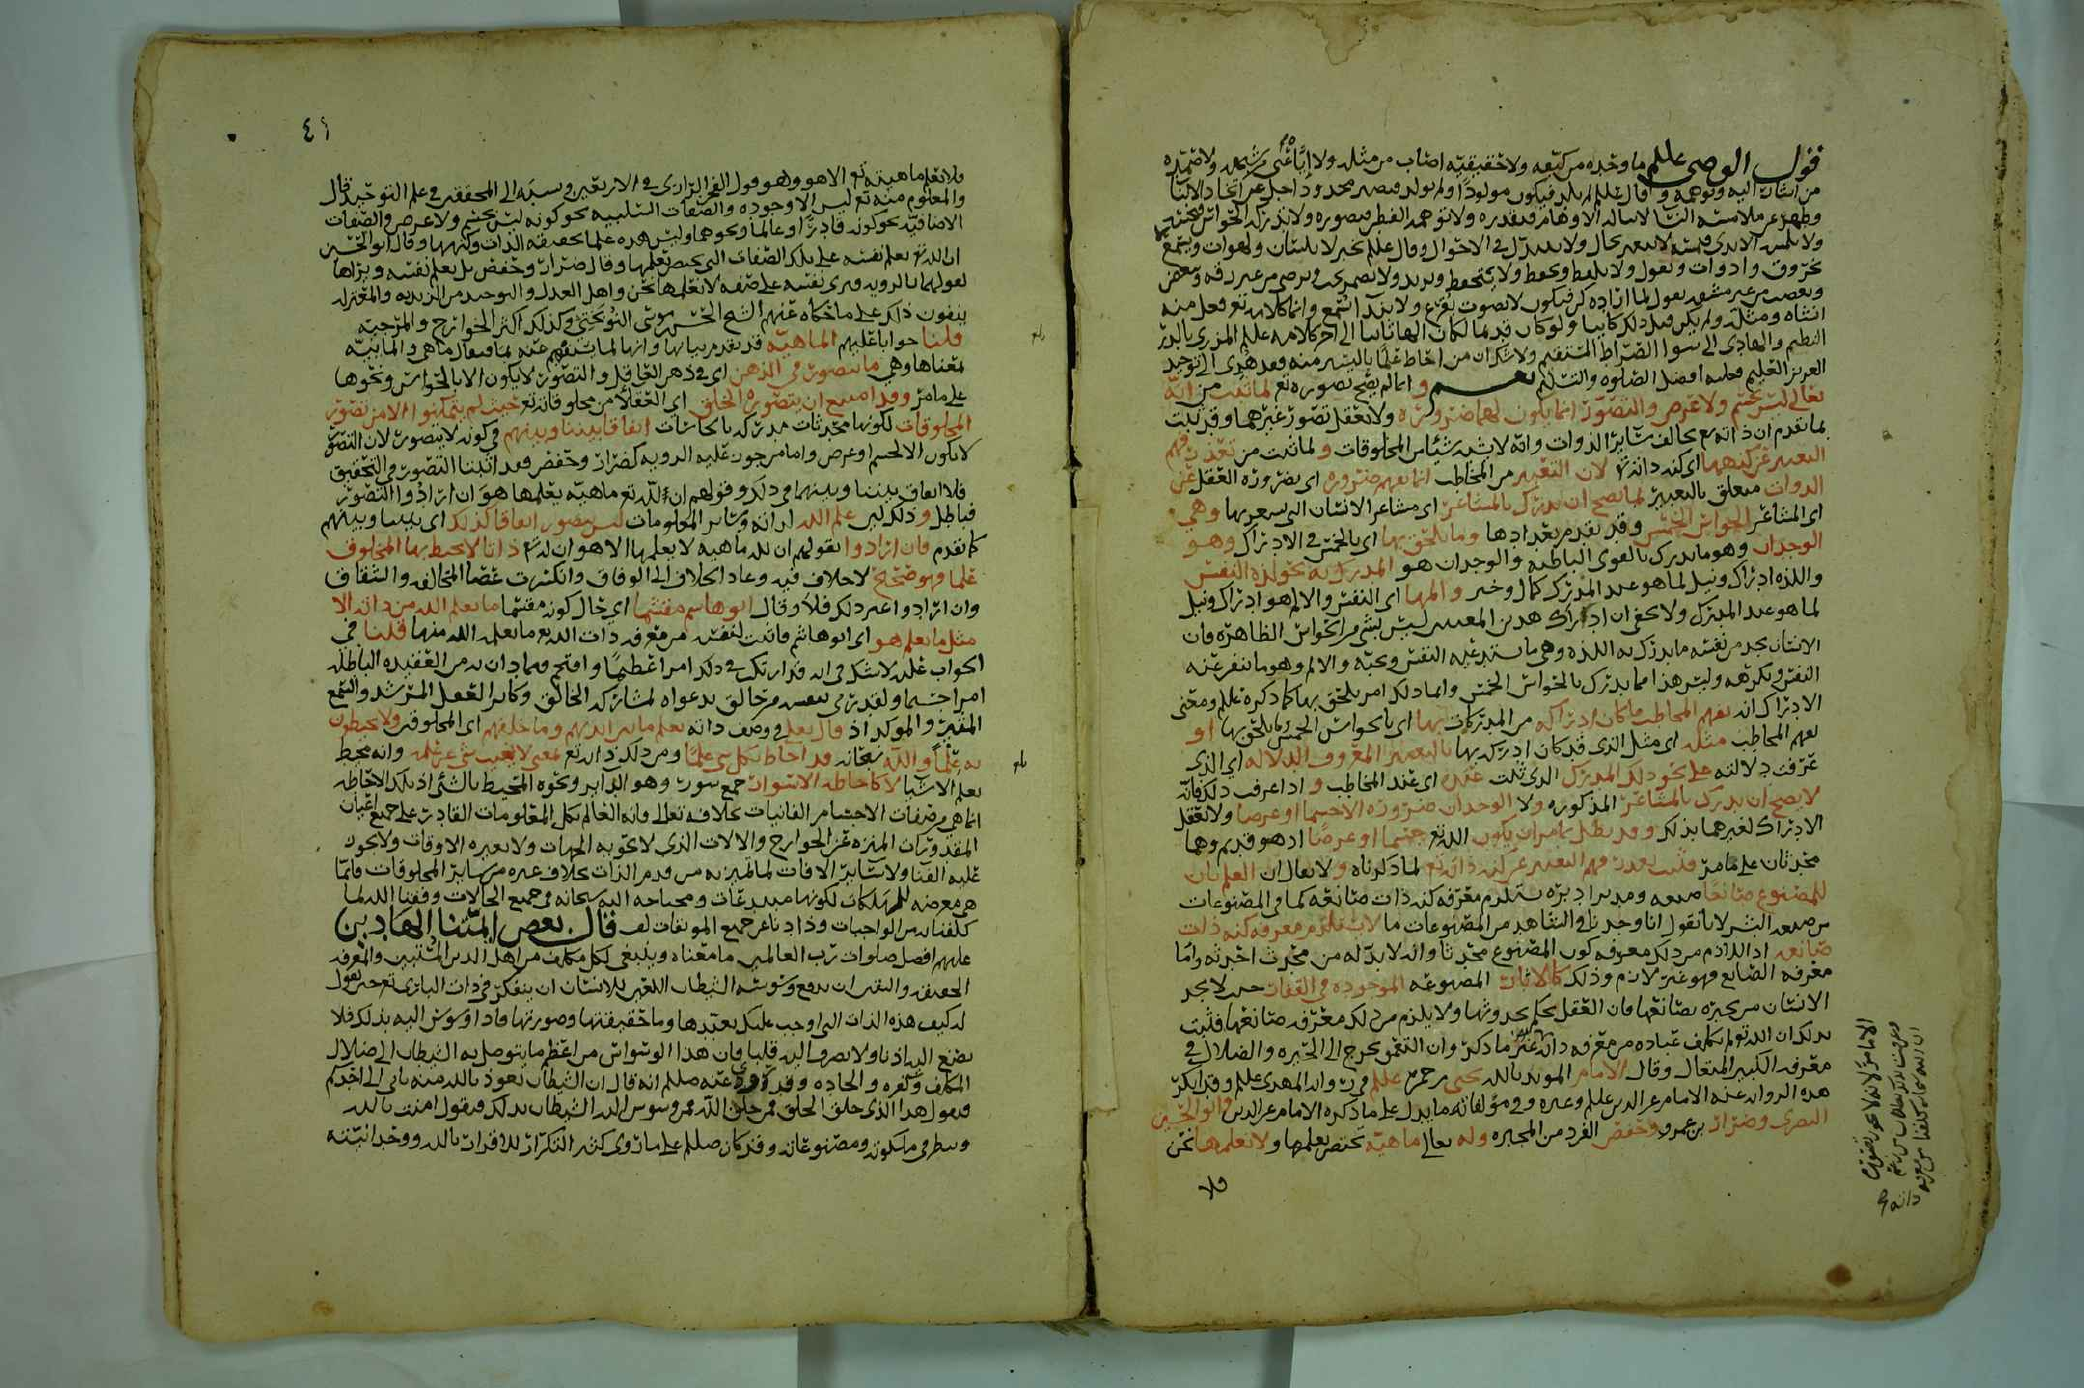 قول الوصي علللم ما وحده من كيفه ولا حقيقته اصاب من مثله ولا اياه عنى من شبهه ولا صمده
من اشار اليه وتوهمه وقال علللم لم يلد فيكون مولودا ولم يولد فيصير محدودا جل عن اتخاذ الابنا
وطهر عن ملامسة النسا لا تناله الاوهام فتقدره ولا تتوهمه الفطن فتصوره ولا تدركه الحواس فتحسه
ولا تلمسه الايدي فتمسه لا يتغير بحال ولا يتبدل في الاحوال وقال علللم يخبر لا بلسان ولهوات ويسمع
بخروق وادوات ويقول ولا يلفظ ويحفظ ولا يتحفظ ويريد ولا يضمر يحب ويرضى من غير رقه ويبغض
ويغضب من غير مشقه يقول لما اراده كن فيكون لا بصوت يقرع ولا بندا يسمع وانما كلامه تع فعل منه
انشاه ومثله ولم يكن قبل ذلك كاينا ولو كان قديما لكان الها ثانيا الى اخر كلامه علللم المزري بالدر
النظيم والهادي الى سوا الصراط المستقيم ولا شك ان من احاط علما باليسير منه فقد هدي الى توحيد
العزيز العليم فعليه افضل الصلوه والتسليم نعم وانما لم يصح تصوره تع لما ثبت من انه
تعالى ليس بجسم ولا عرض والتصور انما يكون لهما ضروره ولا يعقل تصور غيرهما وقد ثبت
بما تقدم ان ذاته تع تخالف ساير الذوات وانه لا يشبه شيئا من المخلوقات ولما ثبت من تعذر فهم
التعبير عن كنهها اي كنه ذاته تع لان التعبير من المخاطب انما يفهم ضروره اي بضرورة العقل عن
الذوات متعلق بالتعبير لما يصح ان يدرك بالمشاعر اي مشاعر الانسان التي يشعر بها وهي
اي المشاعر الحواس الخمس وقد تقدم تعدادها وما يلحق بها اي بالخمس في الادراك وهو
الوجدان وهو ما يدرك بالقوى الباطنه والوجدان هو المدرك به نحو لذة النفس
واللذه ادراك ونيل لما هو عند المدرك كمال وخير والمها اي النفس والالم هو ادراك ونيل
لما هو عند المدرك ولا يخفى ان ادراك هذين المعنيين ليس بشي من الحواس الظاهره فان
الانسان يجد من نفسه ما يدرك به اللذه وهي ما تستدعيه النفس وتحبه والالم وهو ما تنفر عنه
النفس وتكرهه وليس هذا مما يدرك بالحواس الخمس وانما ذلك امر يلحق بها كما ذكره علللم ومعنى
الادراك انه يفهم المخاطب ما كان ادركه من المدركات بها اي بالحواس الخمس وما يلحق بها او
يفهم المخاطب مثله اي مثل الذي قد كان ادركه بها بالتعبير المعروف الدلاله اي الذي
عرفت دلالته على نحو ذلك المدرك الذي ثبت عنده اي عند المخاطب واذا عرفت ذلك فانه
لا يصح ان يدرك بالمشاعر المذكوره ولا الوجدان ضرورة الا جسما او عرضا ولا يعقل
الادراك لغيرهما بذلك وقد بطل بما مر ان يكون الله تع جسما او عرضا اذ هو قديم وهما
محدثان على ما مر فثبت تعذر فهم التعبير عن كنه ذاته تع لما ذكرناه ولا يقال ان العلم بان
للمصنوع صانعا صنعه ومدبرا دبره يستلزم معرفه كنه ذات صانعه كما في المصنوعات
من صنعه البشر لانا نقول انا وجدنا في الشاهد من المصنوعات ما لا يستلزم معرفه كنه ذات
صانعه اذ اللازم من ذلك معرفه كون المصنوع محدثا وانه لا بد له من محدث احدثه واما
معرفه الصانع فهو غير لازم وذلك كالاثار المصنوعه الموجوده في القفار حيث لا يجد
الانسان من يخبره بصانعها فان العقل يحكم بحدوثها ولا يلزم من ذلك معرفه صانعها فثبت
بذلك ان الله تع لم يكلف عباده من معرفه ذاته غير ما ذكر وان التعمق يخرج الى الحيره والضلال في
معرفه الكبير المتعال وقال الامام المويد بالله يحيى بن حمزه علللم في رواية المهدي علللم وقد انكر
هذه الروايه عنه الامام عز الدين علللم وغيره وفي مؤلفاته ما يدل على ما ذكره الامام عز الدين وابو الحسين
البصري وضرار بن عمرو وحفص الفرد من المجبره وله تعالى ماهيه تختص بعلمها ولا نعلمها نحن
ولا
٤١
فلا نعلم ماهيته تع الا هو وهو قول الفخر الرازي في الاربعين ونسبه الى المحققين في علم التوحيد قال
والمعلوم منه تع ليس الا وجوده والصفات السلبيه نحو كونه ليس بجسم ولا عرض والصفات
الاضافيه نحو كونه قادرا وعالما ونحوهما وليس هذه علما بحقيقه الذات وكنهها وقال ابو الحسين
ان الله تع يعلم نفسه على تلك الصفات التي يختص بعلمها وقال ضرار وحفص بل يعلم نفسه ويراها
لقولهما بالرويه ويرى نفسه على صفه لا نعلمها نحن واهل العدل والتوحيد من الزيديه والمعتزله
ينفون ذلك على ما حكاه عنهم الشيخ الحسن بن موسى النوبختي وكذلك اكثر الخوارج والمرجيه
قلنا جوابا عليهم الماهيه قد تقدم بيانها وانها لما يستفهم عنه بما فيقال ما هي والماييه
بمعناها وهي ما يتصور في الذهن اي في ذهن العاقل والتصور لا يكون الا بالحواس ونحوها
على ما مر وقد امتنع ان يتصوره الخلق اي العقلا من مخلوقاته تع حيث لم يتمكنوا الا من تصور
المخلوقات لكونها محدثات مدركه بالحاسات اتفاقا بيننا وبينهم في كونه لا يتصور لان التصور
لا يكون الا لجسم او عرض واما من جوز عليه الرويه كضرار وحفص فقد اثبتا التصور في التحقيق
فلا اتفاق بيننا وبينهما في ذلك وقولهم ان لله تع ماهيه يعلمها هو ان ارادوا التصور
فباطل وذلك لان علم الله لذاته وساير المعلومات ليس بتصور اتفاقا كذلك اي بيننا وبينهم
كما تقدم فان ارادوا بقولهم ان لله ماهيه لا يعلمها الا هو ان له تع ذاتا لا يحيط بها المخلوق
علما فهو صحيح لا خلاف فيه وعاد الخلاف الى الوفاق وانكسرت عصا المخالفه والشقاق
وان ارادوا غير ذلك فلا وقال ابو هاشم مقسما اي حال كونه مقسما ما يعلم الله من ذاته الا
مثل ما يعلم هو اي ابو هاشم فاثبت لنفسه من معرفه ذات الله تع ما يعلمه الله منها قلنا في
الجواب عليه لا شك في انه قد ارتكب في ذلك امرا عظيما واقتحم فيما دان به من العقيده الباطله
امرا جسيما ولقد رمى بنفسه من حالق بدعواه لمشاركه الخالق وكابر العقل المرشد والسمع
المقرر والموكد اذ قال تعلى في وصف ذاته يعلم ما بين ايديهم وما خلفهم اي المخلوقين ولا يحيطون
به علما والله سبحانه قد احاط بكل شي علما ومن ذلك ذاته تع بمعنى لا يغيب شي عن علمه وانه محيط
بعلم الاشيا لا كاحاطه الاسوار جمع سور وهو الداير ونحوه المحيط بالشي اذ تلك الاحاطه
انما هي من صفات الاجسام الفانيات بخلافه تعالى فانه العالم بكل المعلومات القادر على جميع اعيان
المقدورات المنزه عن الجوارح والالات الذي لا تحويه الجهات ولا تغيره الاوقات ولا يجوز
عليه الفنا ولا ساير الافات لما تميز به من قدم الذات بخلاف غيره من ساير المخلوقات فانما
هي معرضه للهلكات لكونها مبتدعات ومحتاجه اليه سبحانه في جميع الحالات وفقنا الله لما
كلفناه من الواجبات وذادنا عن جميع الموبقات قال بعض ايمتنا الهادين
عليهم افضل صلوات رب العالمين ما معناه وينبغي لكل مكلف من اهل الدين المتين والمعرفه
الحقيقه واليقين ان يدفع وسوسه الشيطان اللعين للانسان ان يتفكر في ذات الباري تع حين يقول
له كيف هذه الذات التي اوجب عليك تعبدها وما حقيقتها وصورتها فاذا وسوس اليه بذلك فلا
يضع اليه اذنا ولا يصرف اليه قلبا فان هذا الوسواس من اعظم ما يتوصل به الشيطان الى ضلال
المكلف وكفره والحاده وقد روي عنه صلللم انه قال ان الشيطان نعوذ بالله منه ياتي الى احدكم
فيقول هذا الذي خلق الخلق فمن خلق الله فمن وسوس اليه الشيطان بذلك فيقول امنت بالله
وينظر في ملكوته ومصنوعاته وقد كان صلللم على ما روي كثير التكرار للاقرار بالله ووحدانيته